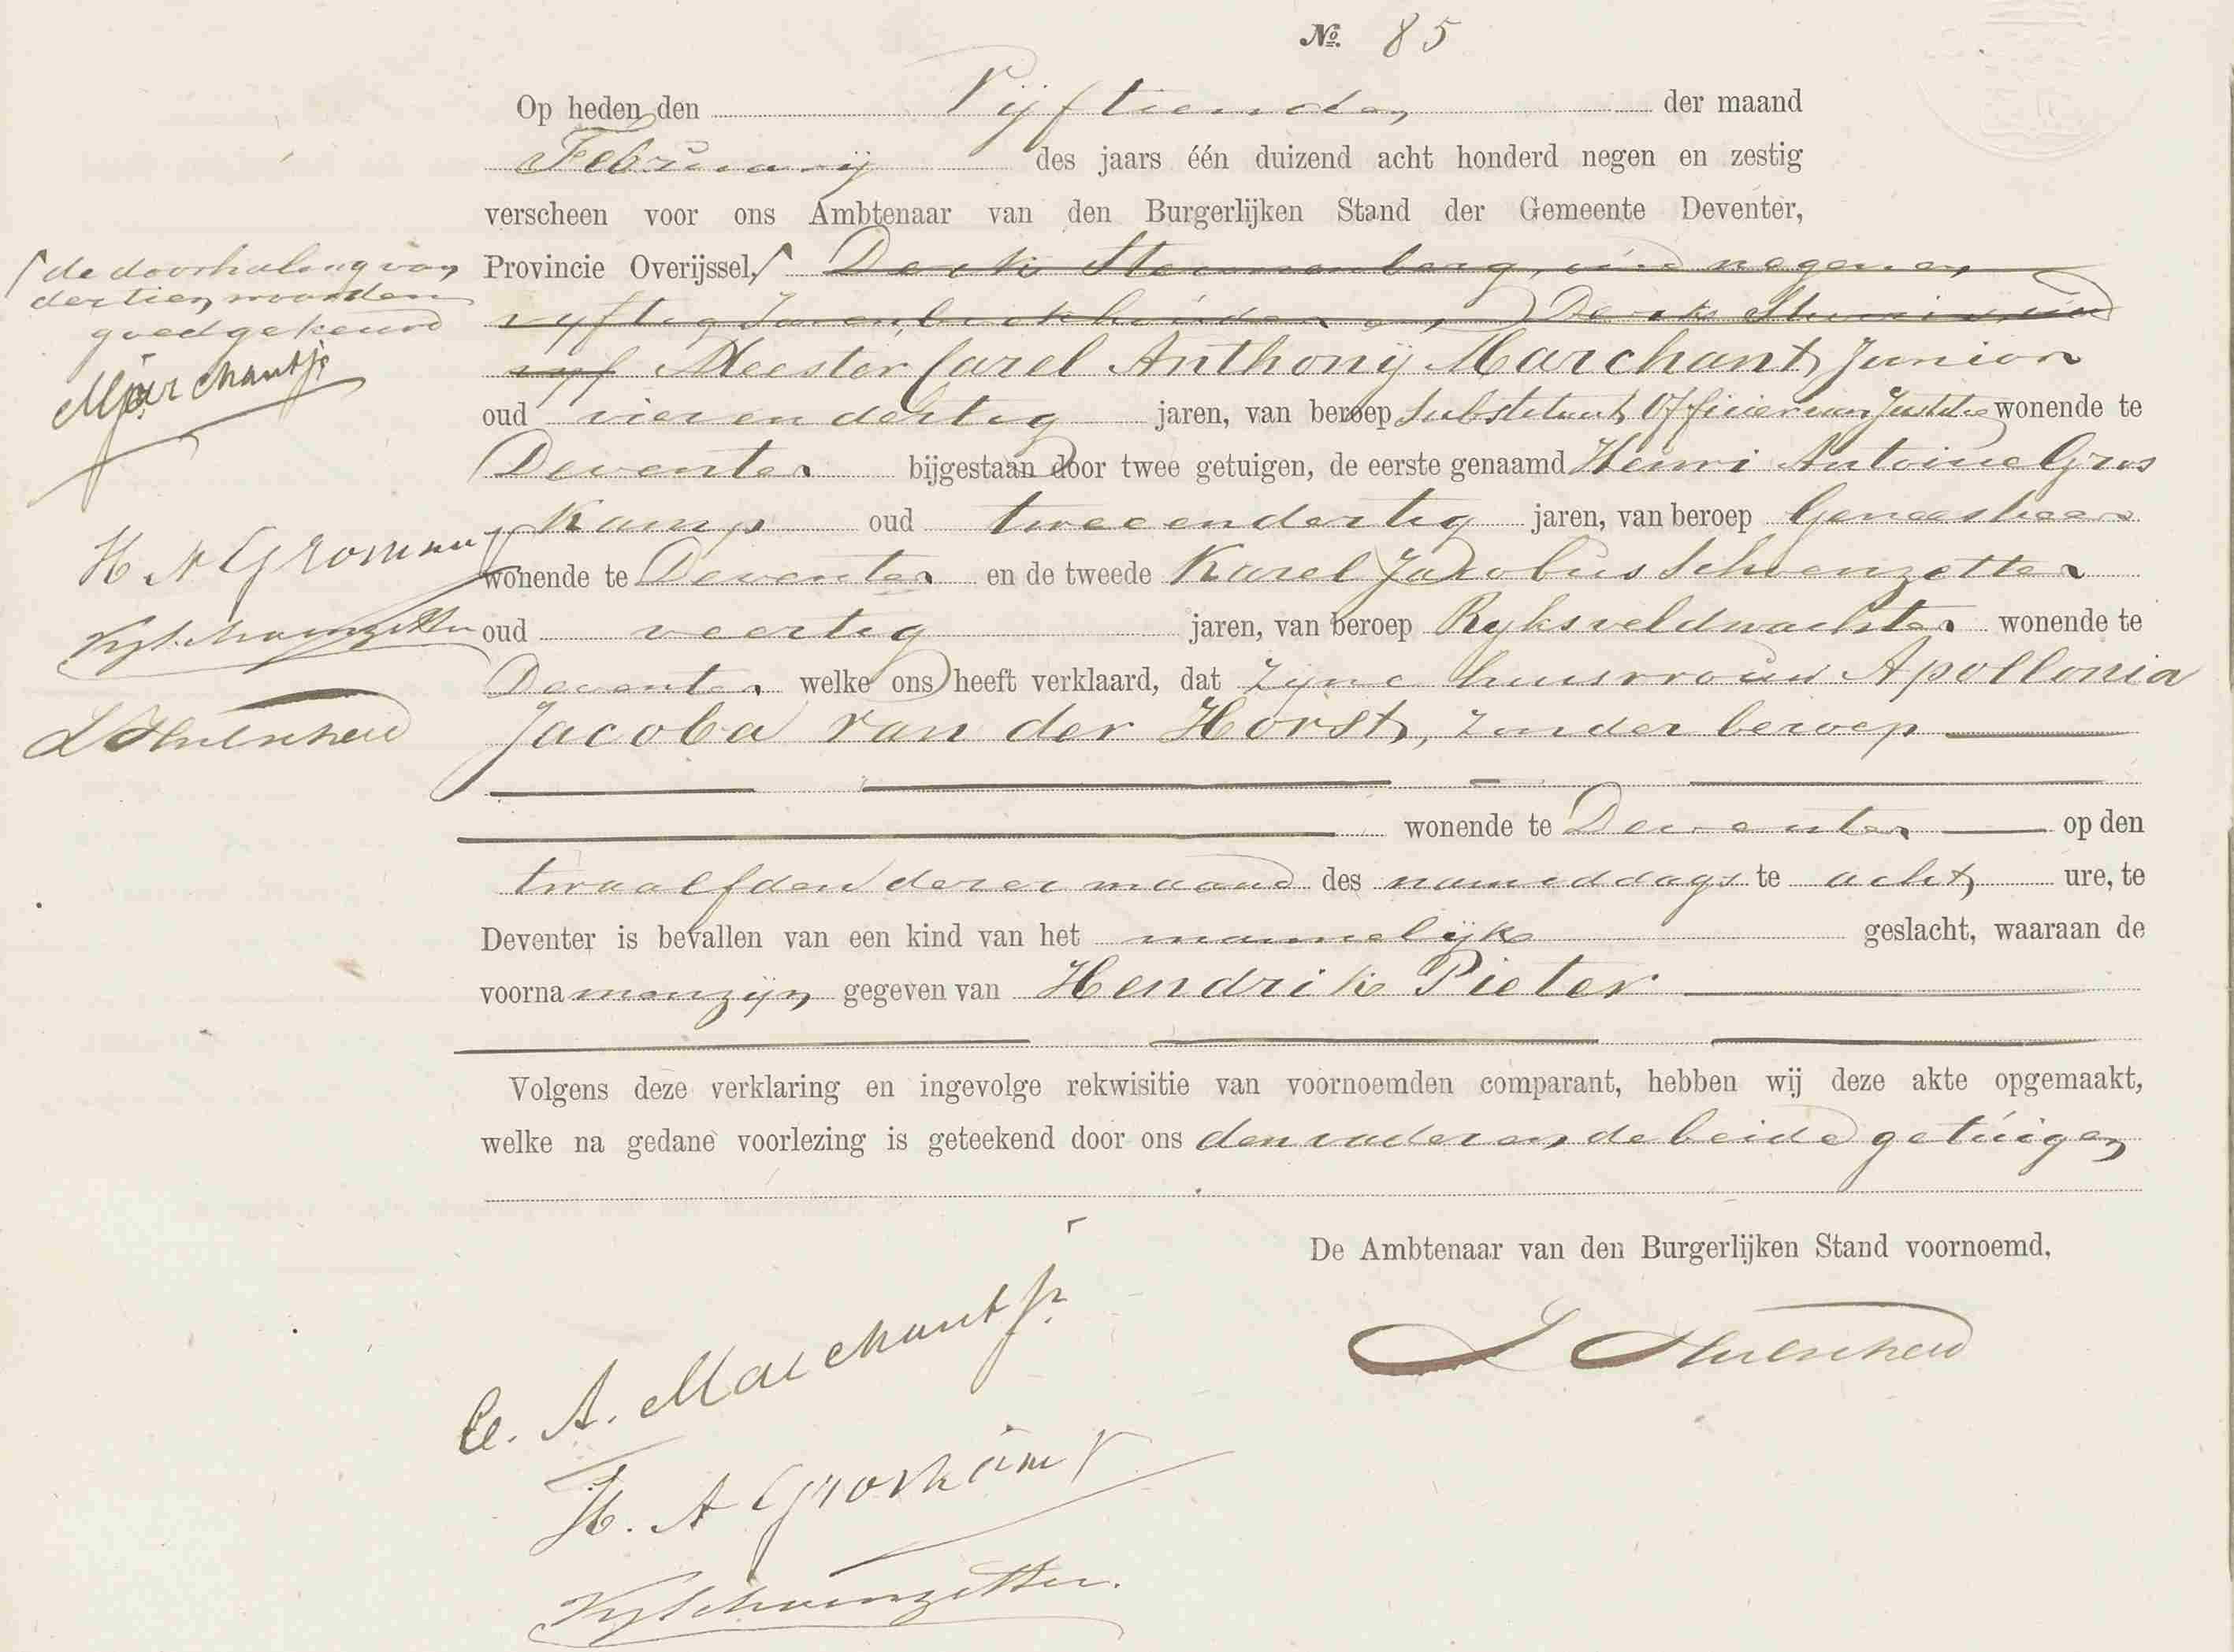 No. 85
Op heden den Vijftienden der maand
Februarij des jaars één duizend acht honderd negen en zestig
verscheen voor ons Ambtenaar van den Burgerlijken Stand der Gemeente Deventer,
Provincie Overijssel, Derk oud negen en
vyftig Jaren, Derk oud
vyf Meester Carel Anthonij Marchant Junior
oud vier en dertig jaren, van beroep Substituut Officier van Justitie wonende te
Deventer bijgestaan door twee getuigen, de eerste genaamd Henri Antoine Gros
kamp oud twee en dertig jaren, van beroep Geneesheer
wonende te Deventer en de tweede Karel Jacobus Schoenzetter
oud veertig jaren, van beroep Ryksveldwachter wonende te
Deventer welke ons heeft verklaard, dat zyne huisvrouw Apollonia
Jacoba van der Horst, zonder beroep
wonende te Deventer op den
twaalfden dezer maand des namiddags te acht ure, te
Deventer is bevallen van een kind van het mannelijke geslacht, waaraan de
voornamen zijn gegeven van Hendrik Pieter
Volgens deze verklaring en ingevolge rekwisitie van voornoemden comparant, hebben wij deze akte opgemaakt,
welke na gedane voorlezing is geteekend door ons den vader en de beide getuigen
De Ambtenaar van den Burgerlijken Stand voornoemd,
C. A. Marchant Jr.
H. A Groskamp
KJ Schoenzetter.
de doorhaling van
dertien woorden
goedgekeurd
Marchant Jr
H A Groskamp
KJ Schoenzetter